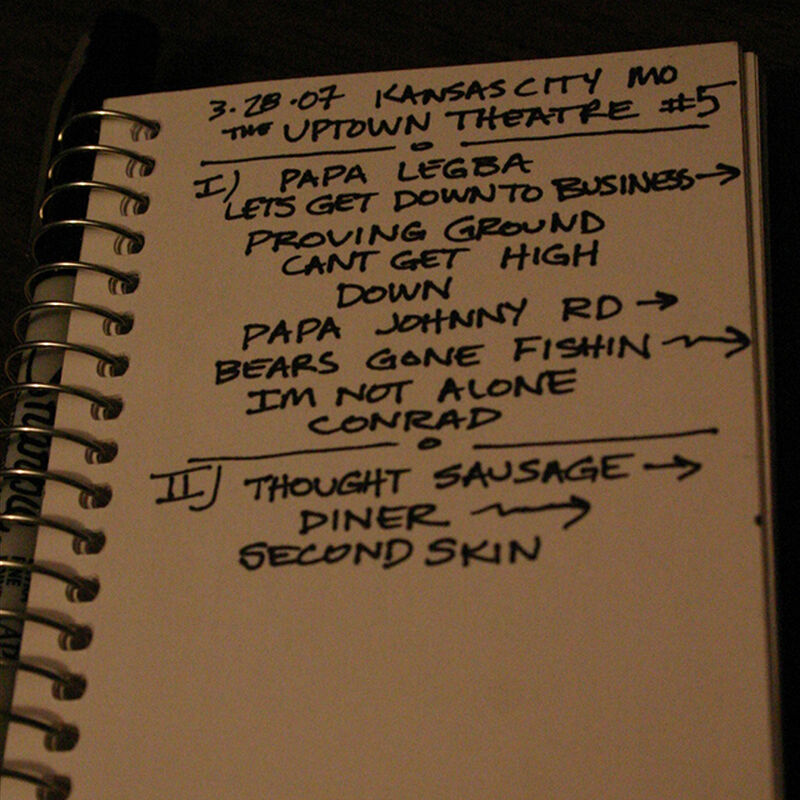 3.28.07 KANSAS CITY MO
THE UPTOWN THEATRE #5
I) PAPA LEGBA
LETS GET DOWN TO BUSINESS →
PROVING GROUND
CANT GET HIGH
DOWN
PAPA JOHNNY RD →
BEARS GONE FISHIN →
IM NOT ALONE
CONRAD
II) THOUGHT SAUSAGE →
DINER →
SECOND SKIN